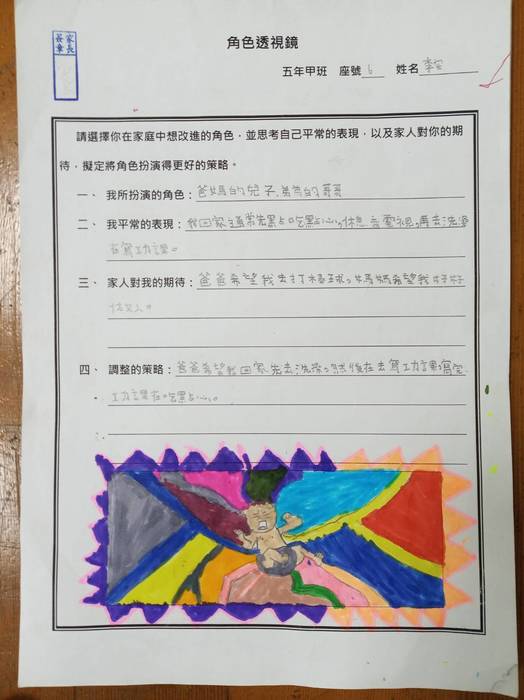 家長
簽章
角色透視鏡
五年甲班 座號 6 姓名 李
請選擇你在家庭中想改進的角色，並思考自己平常的表現，以及家人對你的期
待，擬定將角色扮演得更好的策略。
一、 我所扮演的角色：爸媽的兒子、弟弟的哥哥
二、 我平常的表現：我回家通常先點吃點心，休息看電視，再去洗澡
在寫功課。
三、 家人對我的期待：爸爸希望我去打棒球，媽媽希望我好好
四、 調整的策略：爸爸希望我回家先去洗澡，然後在去寫功課寫完
功課在吃點心。